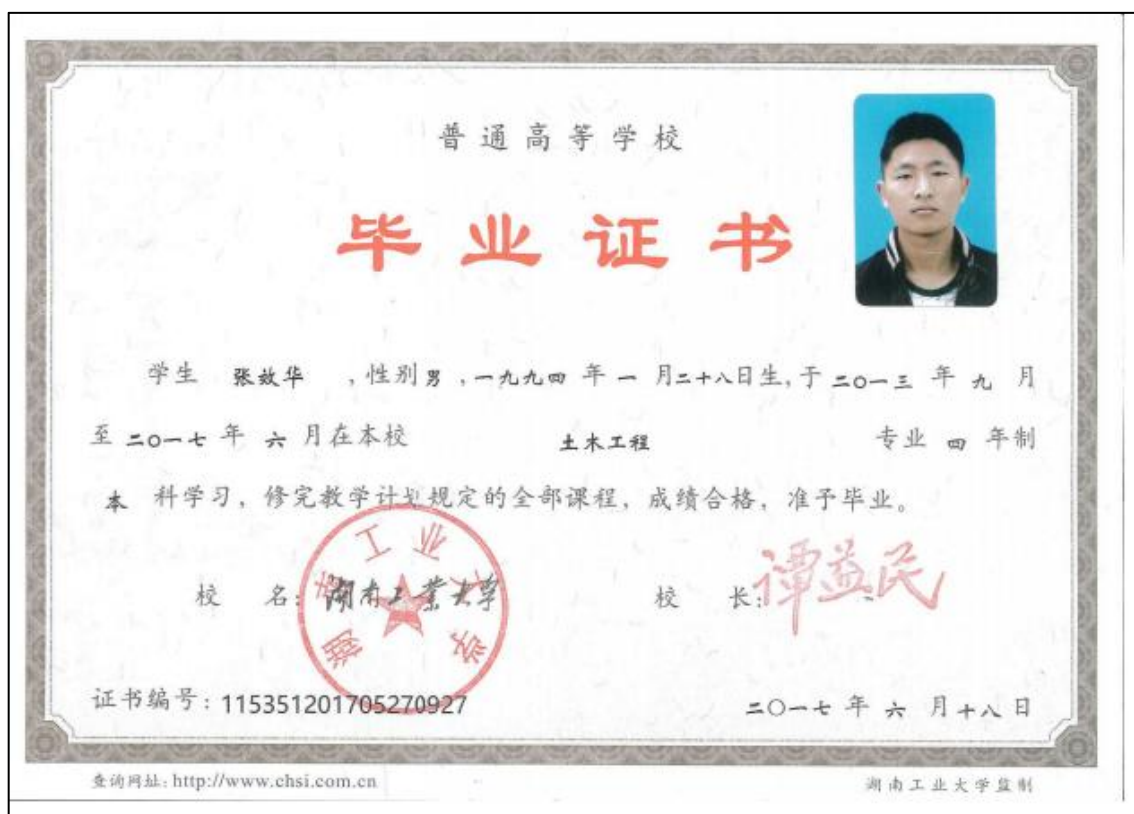 普通高等学校
毕业证书
学生 张效华 ,性别男,一九九四年一月二十八日生,于二〇一三年九月
至二〇一七年六月在本校 土木工程 专业四年制
本科学习,修完教学计划规定的全部课程,成绩合格,准予毕业。
湖南工业大学
校 名: 湖南工业大学 校 长: 谭益民
证书编号:115351201705270927 二〇一七年六月十八日
查询网址:http://www.chsi.com.cn 湖南工业大学监制